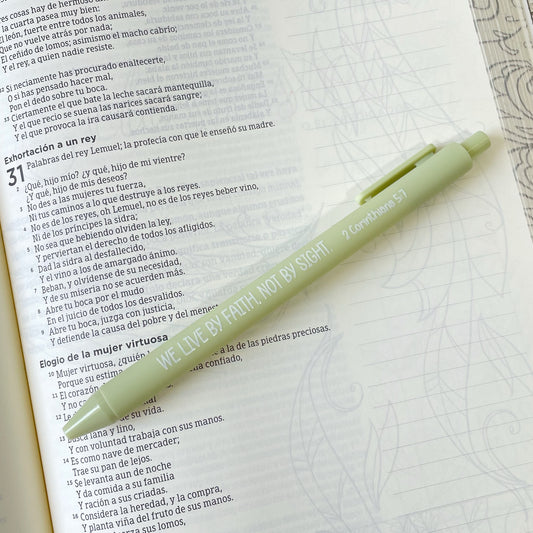 res cosas hay de hermoso
la cuarta pasea muy bien:
El león, fuerte entre todos los animales,
Que no vuelve atrás por nada;
El ceñido de lomos; asimismo el macho cabrío;
Y el rey, a quien nadie resiste.
32 Si neciamente has procurado enaltecerte,
O si has pensado hacer mal,
Pon el dedo sobre tu boca.
33 Ciertamente el que bate la leche sacará mantequilla,
Y el que recio se suena las narices sacará sangre;
Y el que provoca la ira causará contienda.
Exhortación a un rey
31 Palabras del rey Lemuel; la profecía con que le enseñó su madre.
2 ¿Qué, hijo mío? ¿y qué, hijo de mi vientre?
¿Y qué, hijo de mis deseos?
3 No des a las mujeres tu fuerza,
Ni tus caminos a lo que destruye a los reyes.
4 No es de los reyes, oh Lemuel, no es de los reyes beber vino,
Ni de los príncipes la sidra;
5 No sea que bebiendo olviden la ley,
Y perviertan el derecho de todos los afligidos.
6 Dad la sidra al desfallecido,
Y el vino a los de amargado ánimo.
7 Beban, y olvídense de su necesidad,
Y de su miseria no se acuerden más.
8 Abre tu boca por el mudo
En el juicio de todos los desvalidos.
9 Abre tu boca, juzga con justicia,
Y defiende la causa del pobre y del menes
Elogio de la mujer virtuosa
10 Mujer virtuosa, ¿quién la a la de las piedras preciosas.
Porque su estima
11 El corazón confiado,
Y no c
12 Le de su vida.
Busca lana y lino,
Y con voluntad trabaja con sus manos.
14 Es como nave de mercader;
Trae su pan de lejos.
15 Se levanta aun de noche
Y da comida a su familia
Y ración a sus criadas.
16 Considera la heredad, y la compra,
Y planta viña del fruto de sus manos.
sus lomos,
WE LIVE BY FAITH, NOT BY SIGHT. 2 Corinthians 5:7